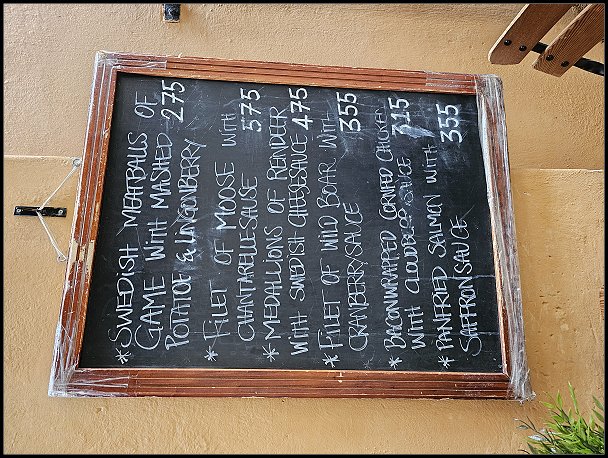 * SWEDISH MEATBALLS OF
GAME WITH MASHED 275
POTATOE & LINGONBERRY
* FILET OF MOOSE WITH
CHANTARELLESAUSE 575
* MEDALLIONS OF REINDEER
WITH SWEDISH CHEESESAUCE 475
* FILET OF WILD BOAR WITH
CRANBERRYSAUCE 355
* BACONWRAPPED CORNFED CHICKEN
WITH CLOUDBERR SAUCE 315
* PANFRIED SALMON WITH
SAFFRON SAUCE 355